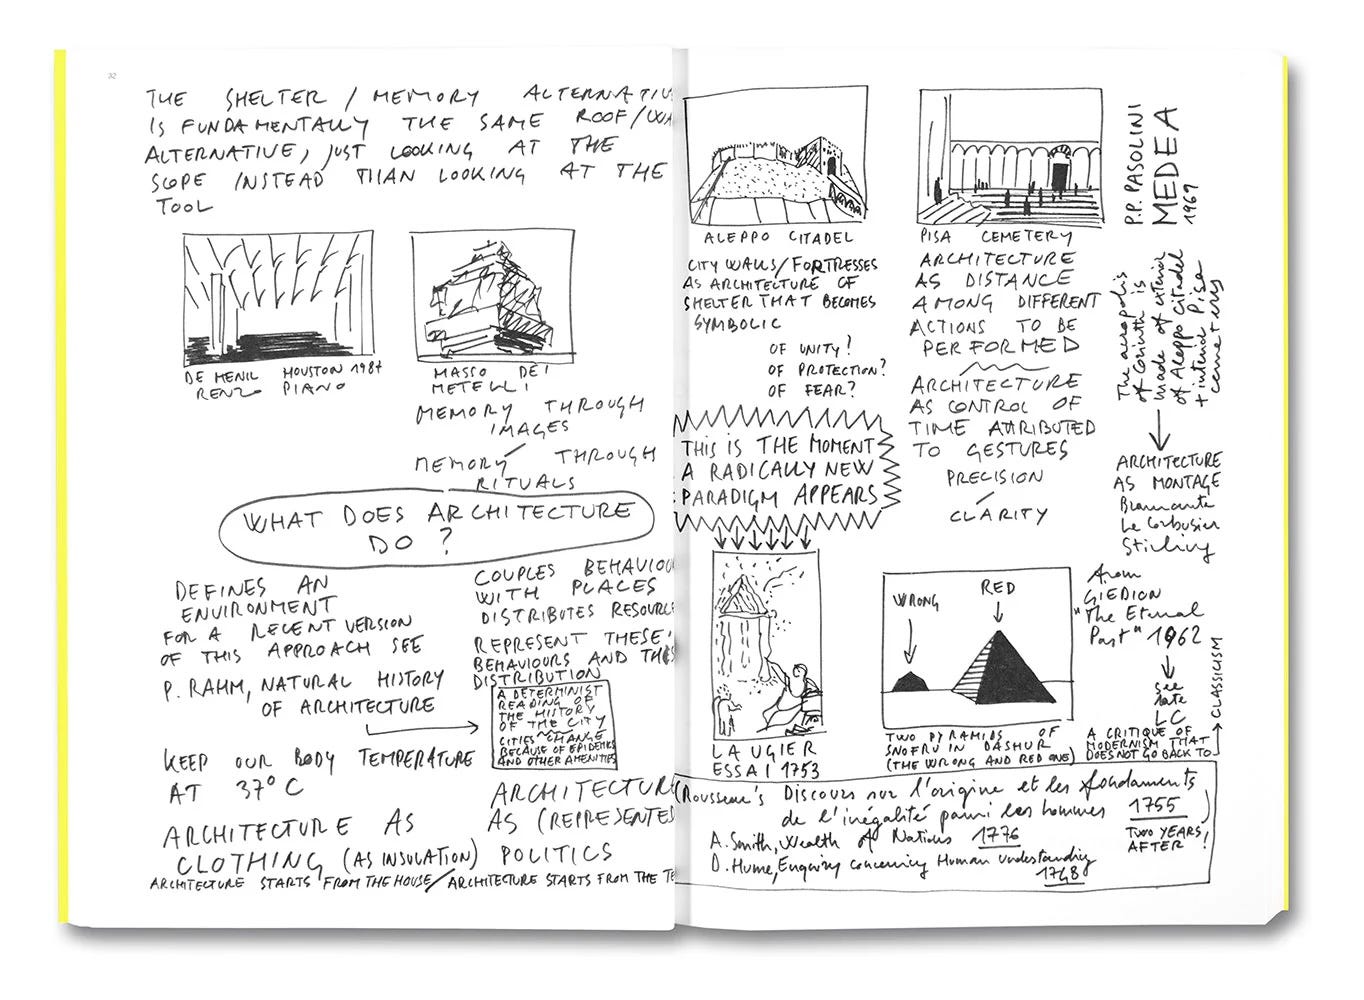 32
THE SHELTER / MEMORY ALTERNATIV
IS FUNDAMENTALLY THE SAME ROOF/WA
ALTERNATIVE, JUST LOOKING AT THE
SCOPE INSTEAD THAN LOOKING AT THE
TOOL
DE MENIL HOUSTON 1987
RENZO PIANO
MASSO DEI
METELLI
MEMORY THROUGH
IMAGES
/
MEMORY THROUGH
RITUALS
WHAT DOES ARCHITECTURE
DO ?
DEFINES AN
ENVIRONMENT
FOR A RECENT VERSION
OF THIS APPROACH SEE
P. RAHM, NATURAL HISTORY
OF ARCHITECTURE
KEEP OUR BODY TEMPERATURE
AT 37° C
ARCHITECTURE AS
CLOTHING (AS INSULATION)
COUPLES BEHAVIOU
WITH PLACES
DISTRIBUTES RESOURCE
REPRESENT THESE
BEHAVIOURS AND THIS
DISTRIBUTION
A DETERMINIST
READING OF
THE HISTORY
OF THE CITY
CITIES CHANGE
BECAUSE OF EPIDEMICS
AND OTHER AMENITIES
ARCHITECTURE
AS (REPRESENTED
POLITICS
ARCHITECTURE STARTS FROM THE HOUSE / ARCHITECTURE STARTS FROM THE TE
ALEPPO CITADEL
CITY WALLS / FORTRESSES
AS ARCHITECTURE OF
SHELTER THAT BECOMES
SYMBOLIC
OF UNITY?
OF PROTECTION?
OF FEAR?
THIS IS THE MOMENT
A RADICALLY NEW
PARADIGM APPEARS
LAUGIER
ESSAI 1753
PISA CEMETERY
ARCHITECTURE
AS DISTANCE
AMONG DIFFERENT
ACTIONS TO BE
PERFORMED
ARCHITECTURE
AS CONTROL OF
TIME ATTRIBUTED
TO GESTURES
PRECISION
/
CLARITY
WRONG
RED
TWO PYRAMIDS OF
SNOFRU IN DASHUR
(THE WRONG AND RED ONE)
P.P. PASOLINI
MEDEA
1969
The acropolis
of Corinth is
made of exterior
of Aleppo Citadel
+ interior Pisa
cemetery
ARCHITECTURE
AS MONTAGE
Bramante
Le Corbusier
Stirling
from
GIEDION
"The Eternal
Past" 1962
see
late
LC
A CRITIQUE OF
MODERNISM THAT
DOES NOT GO BACK TO
CLASSICISM
(Rousseau's Discours sur l'origine et les fondaments
de l'inégalité parmi les hommes 1755
A. Smith, Wealth of Nations 1776
D. Hume, Enquiry concerning Human Understanding
1748
TWO YEARS
AFTER!